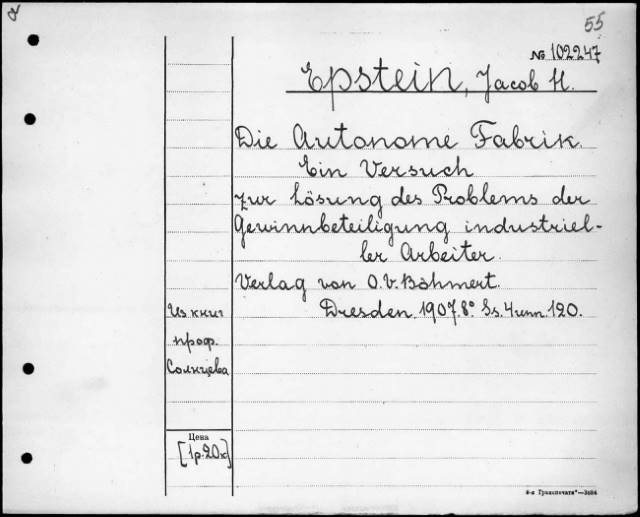 55
№ 102247
Epstein, Jacob H.
Die Autonome Fabrik.
Ein Versuch
zur Lösung des Problems der
Gewinnbeteiligung industriel-
ler Arbeiter.
Verlag von O.V. Böhmert.
Dresden. 1907. 8° Ss. 4 unn. 120.
Из книг
проф.
Солнцева
Цена
[1 р. 20 к]
Транспечати"—3484